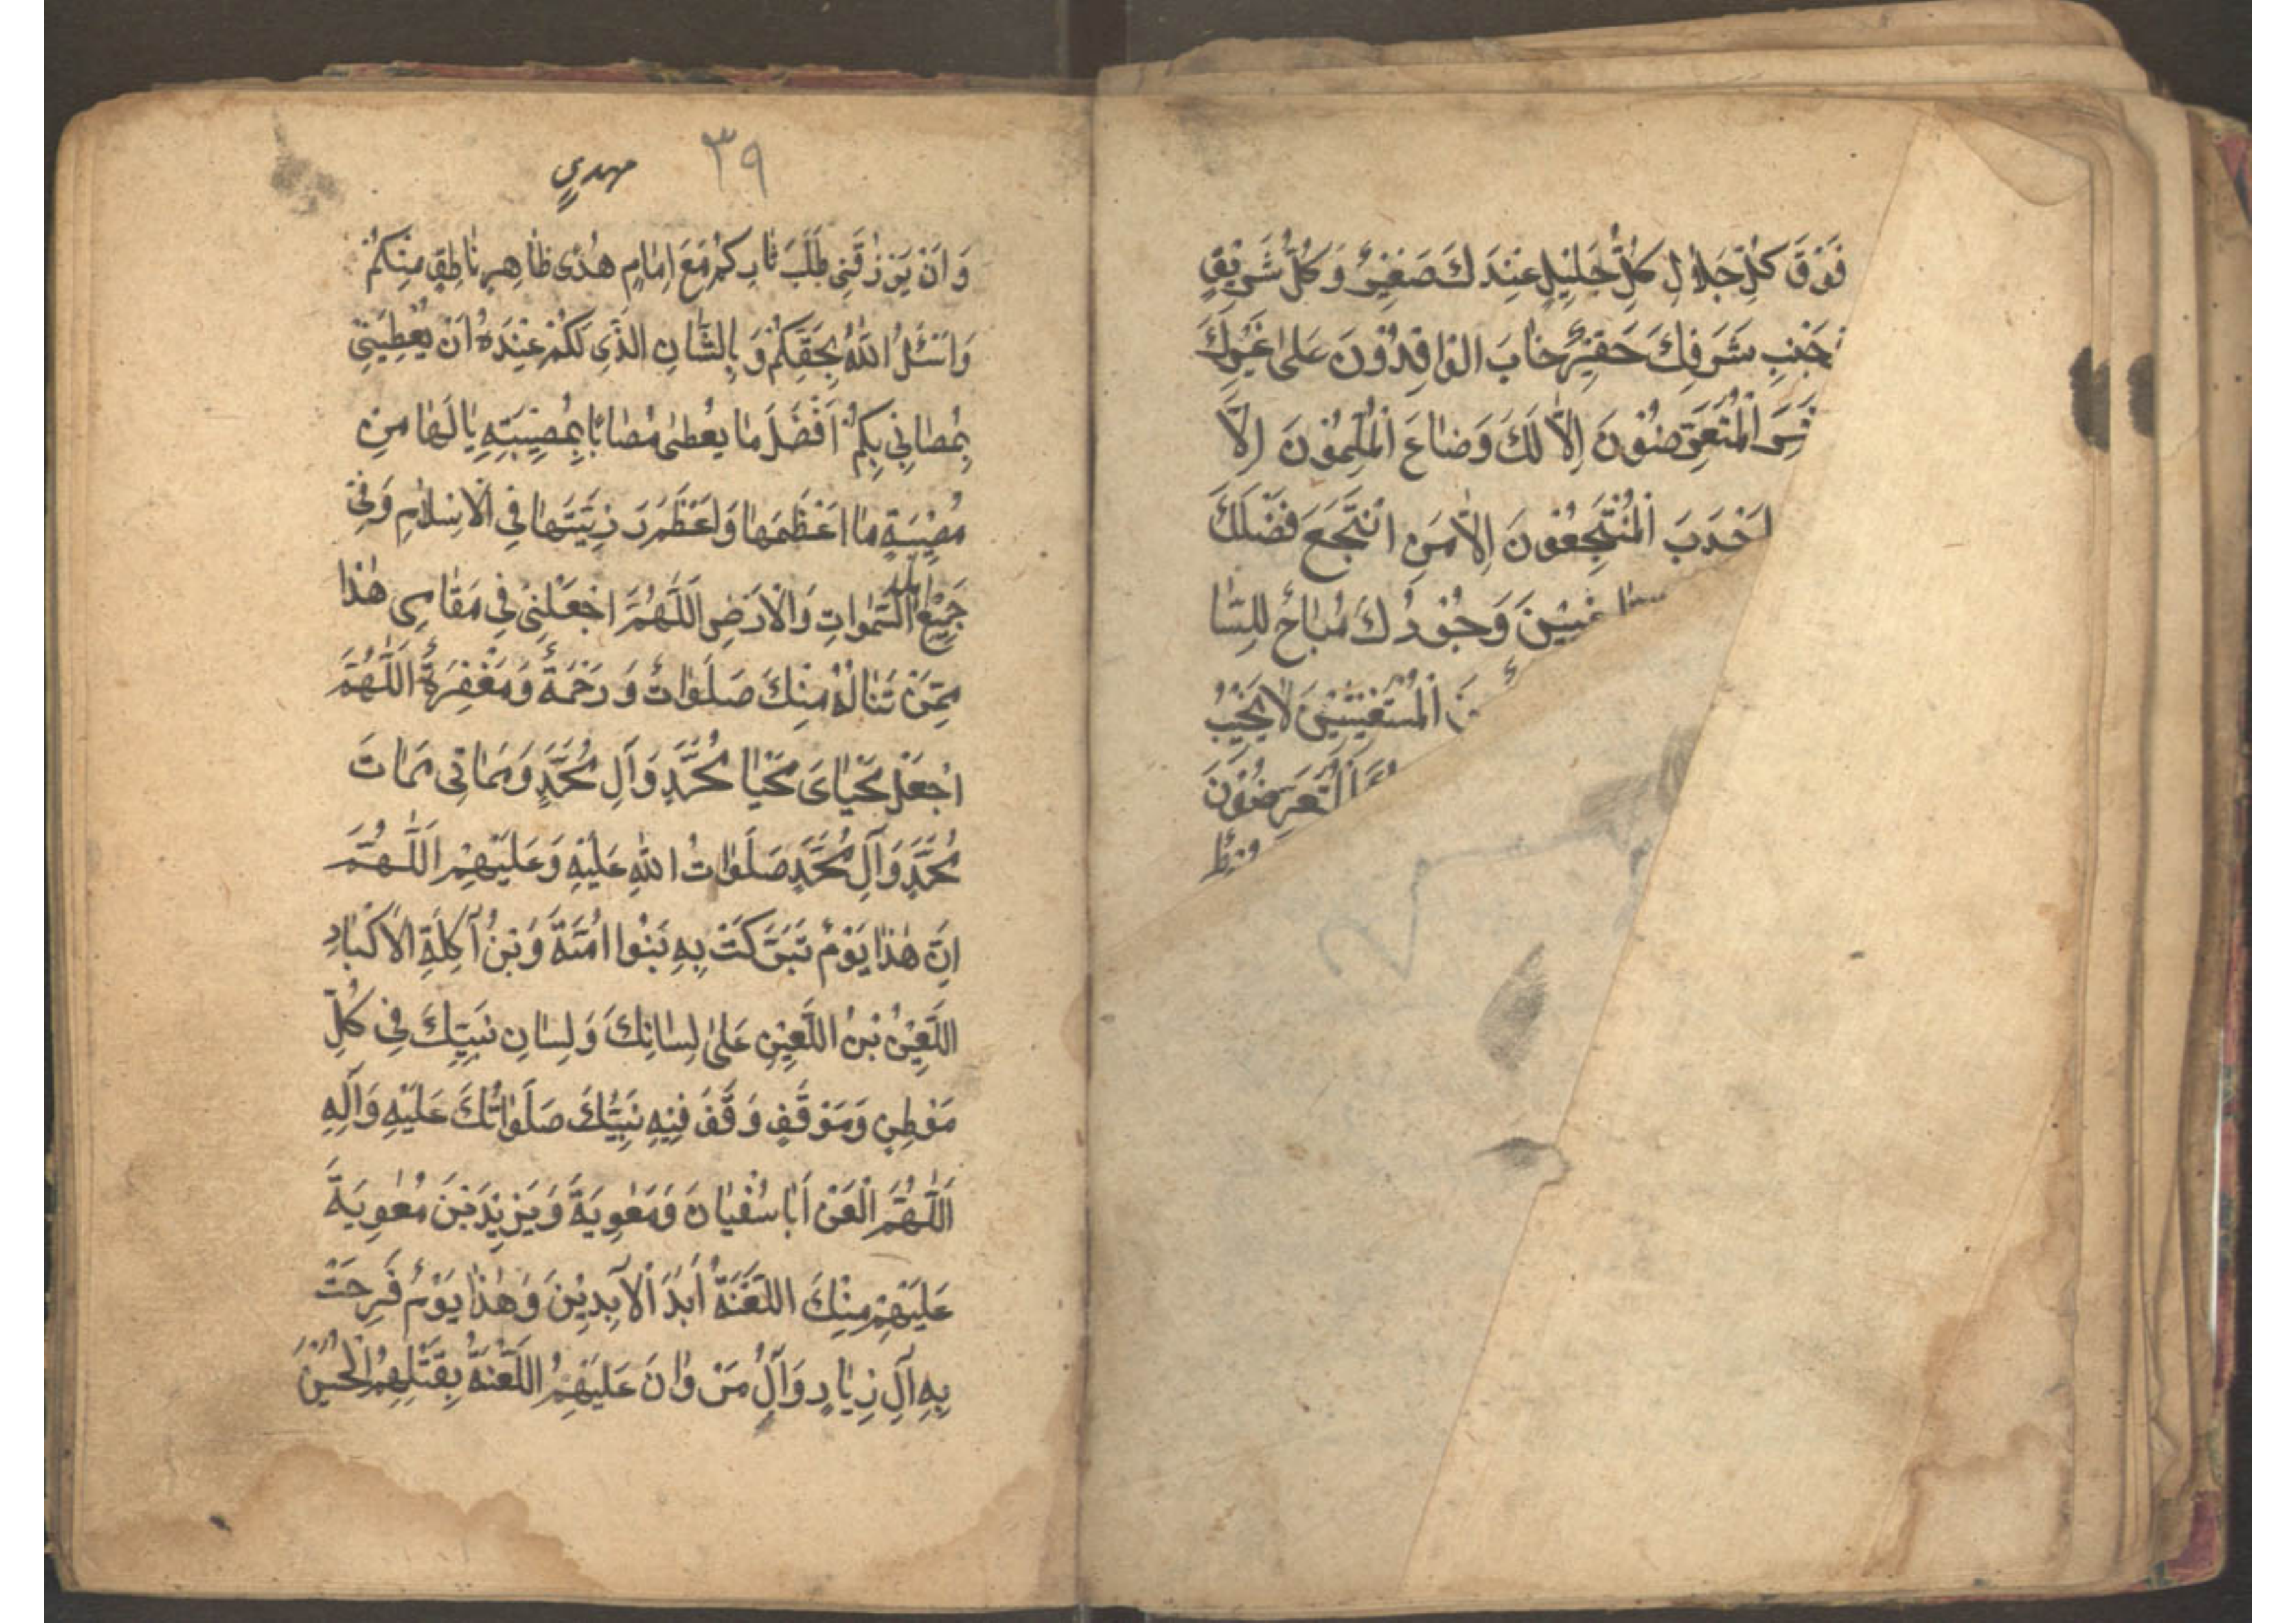 فَوْقَ كُلِّ جَلَالٍ كُلُّ جَلِيْلٍ عِنْدَكَ صَغِيْرٌ وَكُلُّ شَرِيْفٍ
جَنْبِ شَرَفِكَ حَقِيْرٌ خَابَ الْوَافِدُوْنَ عَلىٰ غَيْرِكَ
الْمُتَعَرِّضُوْنَ اِلَّا لَكَ وَضَاعَ الْمُلِمُّوْنَ اِلَّا
اَجْدَبَ الْمُنْتَجِعُوْنَ اِلَّا مَنِ انْتَجَعَ فَضْلَكَ
غِبِيْنَ وَجُوْدُكَ مُبَاحٌ لِلسَّا
الْمُسْتَغِيْثِيْنَ لَا يَخِيْبُ
الْمُتَعَرِّضُوْنَ
٣٩
مهدي
وَاَنْ يَرْزُقَنِى طَلَبَ ثَارِكُمْ مَعَ اِمَامٍ هُدًى ظَاهِرٍ نَاطِقٍ مِنْكُمْ
وَاَسْئَلُ اللّٰهَ بِحَقِّكُمْ وَبِالشَّانِ الَّذِى لَكُمْ عِنْدَهُ اَنْ يُعْطِيَنِىْ
بِمُصَابِى بِكُمْ اَفْضَلَ مَا يُعْطىٰ مُصَابًا بِمُصِيْبَتِهِ يَا لَهَا مِنْ
مُصِيْبَةٍ مَا اَعْظَمَهَا وَاَعْظَمَ رَزِيَّتَهَا فِى الْاِسْلَامِ وَفِىْ
جَمِيْعِ السَّمٰوَاتِ وَالْاَرْضِ اَللّٰهُمَّ اجْعَلْنِىْ فِى مَقَامِى هٰذَا
مِمَّنْ تَنَالُهُ مِنْكَ صَلَوَاتٌ وَرَحْمَةٌ وَمَغْفِرَةٌ اَللّٰهُمَّ
اجْعَلْ مَحْيَاىَ مَحْيَا مُحَمَّدٍ وَآلِ مُحَمَّدٍ وَمَمَاتِى مَمَاتَ
مُحَمَّدٍ وَآلِ مُحَمَّدٍ صَلَوَاتُ اللّٰهِ عَلَيْهِ وَعَلَيْهِمْ اَللّٰهُمَّ
اِنَّ هٰذَا يَوْمٌ تَبَرَّكَتْ بِهِ بَنُوا اُمَيَّةَ وَبْنُ آكِلَةِ الْاَكْبَادِ
اللَّعِيْنُ بْنُ اللَّعِيْنِ عَلىٰ لِسَانِكَ وَلِسَانِ نَبِيِّكَ فِى كُلِّ
مَوْطِنٍ وَمَوْقِفٍ وَقَفَ فِيْهِ نَبِيُّكَ صَلَوَاتُكَ عَلَيْهِ وَآلِهِ
اَللّٰهُمَّ الْعَنْ اَبَا سُفْيَانَ وَمُعٰوِيَةَ وَيَزِيْدَ بْنَ مُعٰوِيَةَ
عَلَيْهِمْ مِنْكَ اللَّعْنَةُ اَبَدَ الْآبِدِيْنَ وَهٰذَا يَوْمٌ فَرِحَتْ
بِهِ آلِ زِيَادٍ وَآلُ مَرْوَانَ عَلَيْهِمُ اللَّعْنَةُ بِقَتْلِهِمُ الْحُسَيْنَ